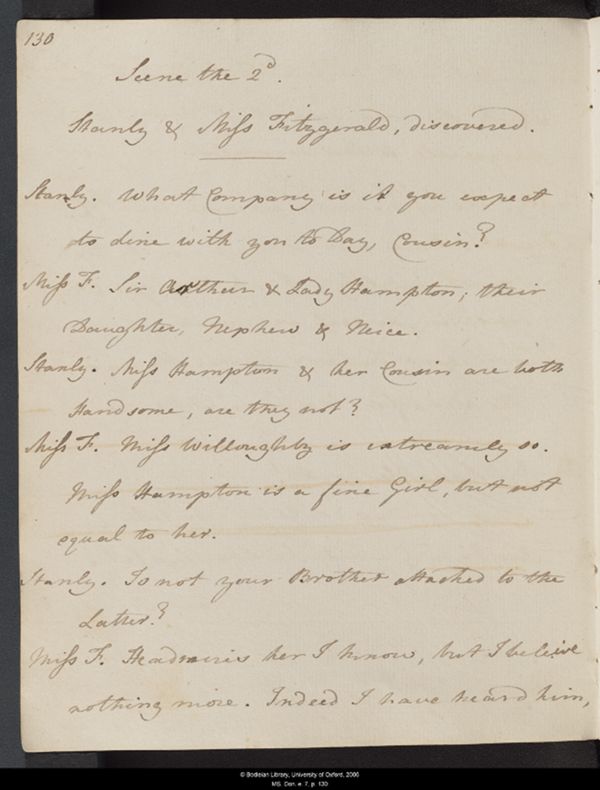 130
Scene the 2d.
Stanly & Miss Fitzgerald, discovered.
Stanly. What Company is it you expect
to dine with you to Day, Cousin?
Miss F. Sir Arthur & Lady Hampton; their
Daughter, Nephew & Neice.
Stanly. Miss Hampton & her Cousin are both
Handsome, are they not?
Miss F. Miss Willoughby is extreamly so.
Miss Hampton is a fine Girl, but not
equal to her.
Stanly. Is not your Brother attached to the
Latter?
Miss F. He admires her I know, but I beleive
nothing more. Indeed I have heard him,
© Bodleian Library, University of Oxford, 2000
MS. Don. e. 7, p. 130